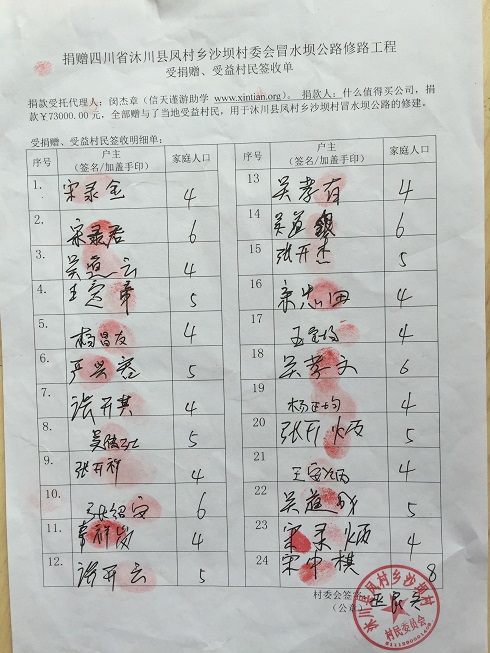 捐赠四川省沐川县凤村乡沙坝村委会冒水坝公路修路工程
受捐赠、受益村民签收单
捐款受托代理人：闵杰章（信天谨游助学 www.xintian.org）。捐款人：什么值得买公司，捐
款￥73000.00元，全部赠与了当地受益村民，用于沐川县凤村乡沙坝村冒水坝公路的修建。
受捐赠、受益村民签收明细单：
序号 户主（签名/加盖手印） 家庭人口
1. 宋录全 4
2. 宋录君 6
3. 吴 云 4
4. 王 5
5. 杨昌友 4
6. 严兴容 5
7. 张开其 4
8. 吴 5
9. 张开祥 4
10. 张绍安 6
11. 李祥 4
12. 张开云 5
序号 户主（签名/加盖手印） 家庭人口
13 吴孝有 4
14 吴 银 6
15 张开杰 5
16 宋忠田 4
17 王 4
18 吴孝文 6
19 杨 均 4
20 张开炳 5
21 王 炳 4
22 吴 5
23 宋录炳 4
24 宋中棋 8
村委会签字
（公章）
沐川县凤村乡沙坝村
村民委员会